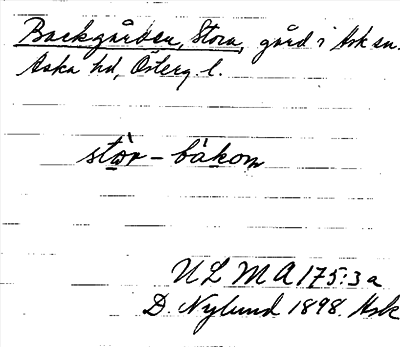 Backgården, Stora, gård i Ask sn.
Aska hd, Österg. l.
stòr - bàkom
ULMA 175:3a
D. Nylund 1898. Ask